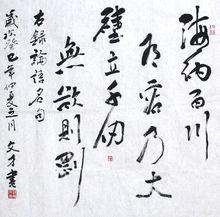 海納百川
有容乃大
壁立千仞
無欲則剛
右録論語名句
歲次癸巳年仲夏月 文才書